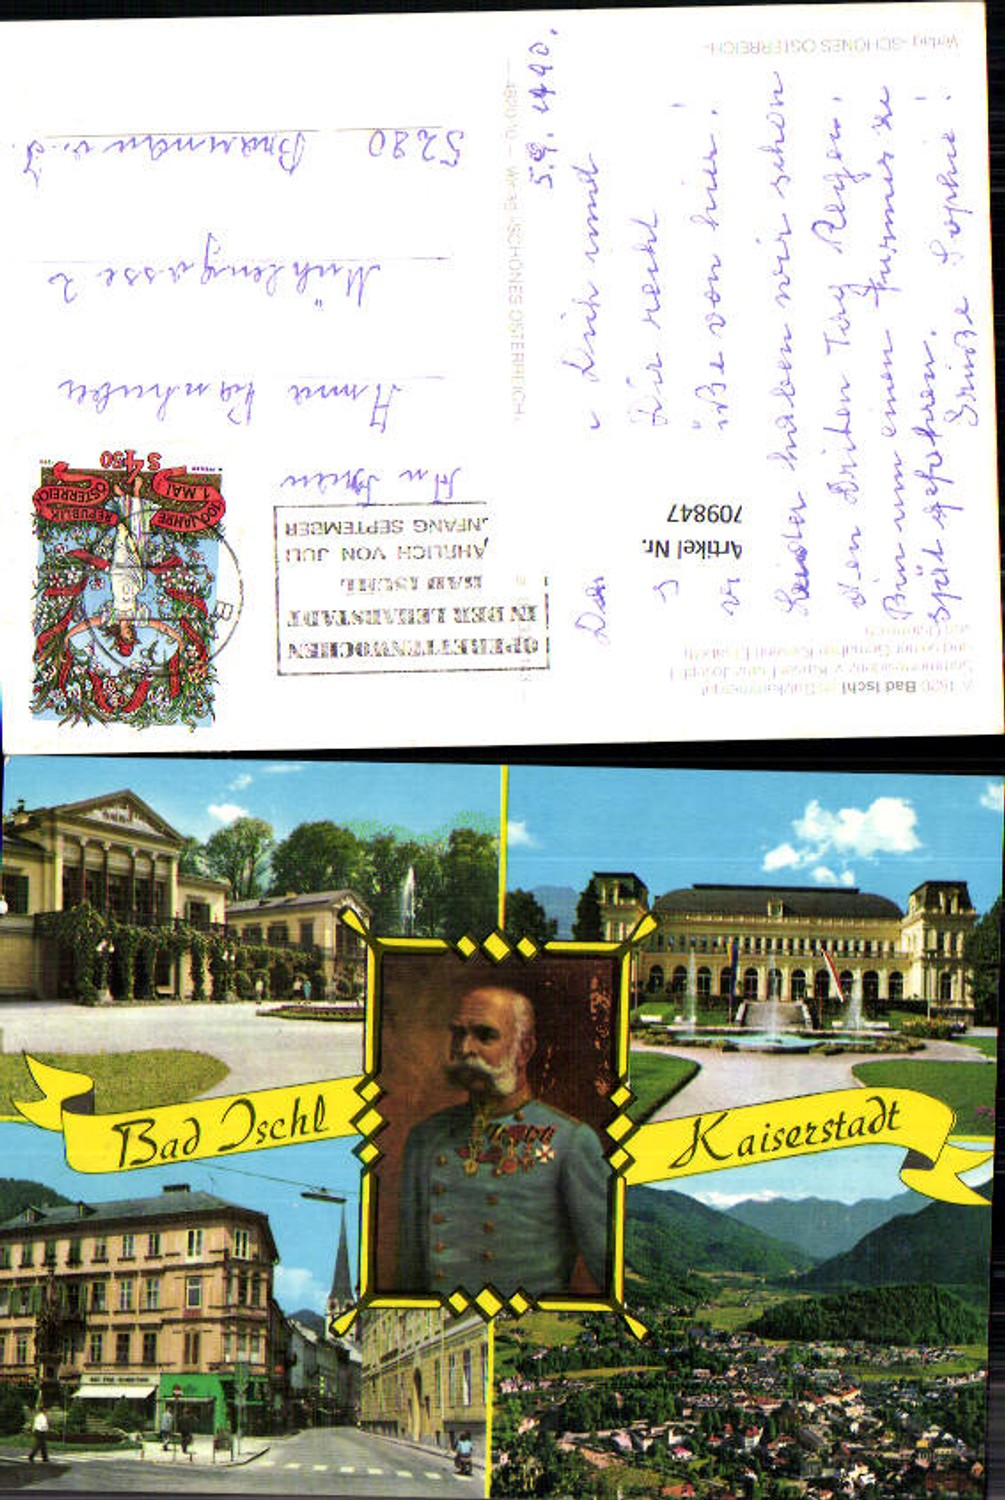 Verlag «SCHÖNES ÖSTERREICH»
5.9.1990.
Dich und
Dir recht
üße von hier!
Leider haben wir schon
den dritten Tag Regen.
Bin um einen Turnus zu
spät gefahren.
Grüße Sophie!
Artikel Nr.
709847
A 4820 Bad Ischl im Salzkammergut
Sommerresidenz v. Kaiser Franz Joseph I.
und seiner Gemahlin Kaiserin Elisabeth
von Österreich
Verlag «SCHÖNES ÖSTERREICH»
OPERETTENWOCHEN
IN DER LEHARSTADT
BAD ISCHL
ÄHRLICH VON JULI
NFANG SEPTEMBER
100 JAHRE
1. MAI
REPUBLIK
ÖSTERREICH
S 4.50
An Frau
Anna
Mühlengasse 2
5280 Braunau a. I.
Bad Ischl
Kaiserstadt